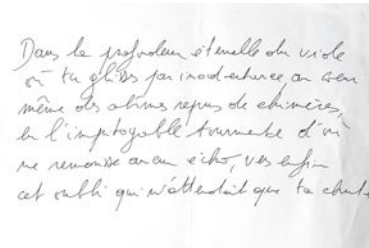 Dans la profondeur éternelle du vide
où tu glisses par inadvertance, au cœur
même des abîmes repus de chimères,
en l'impitoyable tourmente d'où
ne remonte aucun écho, vers enfin
cet oubli qui n'attendait que ta chute